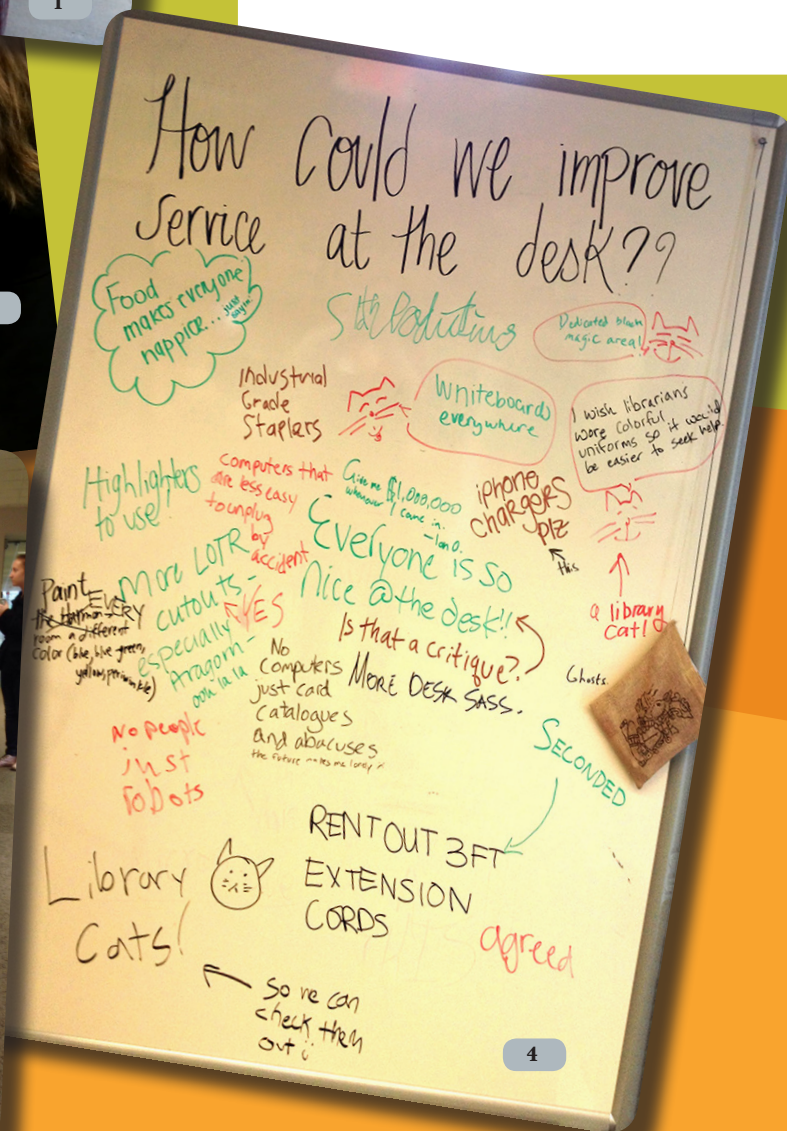 1
How could we improve
service at the desk??
Food
makes everyone
happire...
just
sayin'
Dedicated black
magic area!
Industrial
Grade
Staplars
Whiteboards
everywhere
I wish librarians
wore colorful
uniforms so it would
be easier to seek help.
Highlighters
to use!
Computers that
are less easy
to unplug
by
accident
Give me $1,000,000
whenever I come in.
-Ian O.
iphone
chargers
plz
this
Everyone is so
nice @ the desk!!
a library
cat!
More LOTR
cutouts-
especially
Aragorn-
ooh la la
YES
Paint EVERY
room a different
color (blue, blue green,
yellow, periwinkle)
Is that a critique?
No
Computers
just card
catalogues
and abacuses
the future makes me lonely
MORE DESK SASS.
Ghosts.
SECONDED
No people
just
robots
RENT OUT 3FT
EXTENSION
CORDS
agreed
Library
Cats!
So we can
check them
out
4